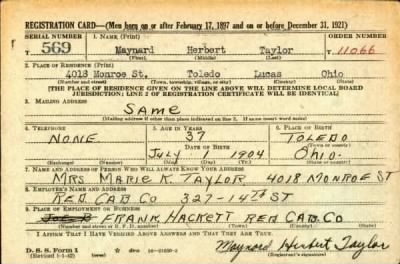 REGISTRATION CARD—(Men born on or after February 17, 1897 and on or before December 31, 1921)
SERIAL NUMBER 1. NAME (Print) ORDER NUMBER
T 569 Maynard Herbert Taylor T 11066
(First) (Middle) (Last)
2. PLACE OF RESIDENCE (Print)
4018 Monroe St. Toledo Lucas Ohio
(Number and street) (Town, township, village, or city) (County) (State)
[THE PLACE OF RESIDENCE GIVEN ON THE LINE ABOVE WILL DETERMINE LOCAL BOARD
JURISDICTION; LINE 2 OF REGISTRATION CERTIFICATE WILL BE IDENTICAL]
3. MAILING ADDRESS
SAME
(Mailing address if other than place indicated on line 2. If same insert word same)
4. TELEPHONE 5. AGE IN YEARS 6. PLACE OF BIRTH
NONE 37 TOLEDO
DATE OF BIRTH (Town or county)
JULY 1 1904 Ohio.
(Exchange) (Number) (Mo.) (Day) (Yr.) (State or country)
7. NAME AND ADDRESS OF PERSON WHO WILL ALWAYS KNOW YOUR ADDRESS
MRS MARIE K. TAYLOR 4018 MONROE ST
8. EMPLOYER'S NAME AND ADDRESS
RED CAB CO 327-14TH ST
9. PLACE OF EMPLOYMENT OR BUSINESS
FRANK HACKETT RED CAB CO
(Number and street or R. F. D. number) (Town) (County) (State)
I AFFIRM THAT I HAVE VERIFIED ABOVE ANSWERS AND THAT THEY ARE TRUE.
D. S. S. Form 1
(Revised 1-1-42) (over) Maynard Herbert Taylor
(Registrant's signature)